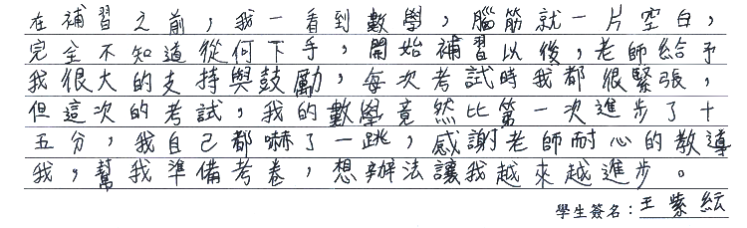 在補習之前，我一看到數學，腦筋就一片空白，
完全不知道從何下手，開始補習以後，老師給予
我很大的支持與鼓勵，每次考試時我都很緊張，
但這次的考試，我的數學竟然比第一次進步了十
五分，我自己都嚇了一跳，感謝老師耐心的教導
我，幫我準備考卷，想辦法讓我越來越進步。
學生簽名：王紫紜